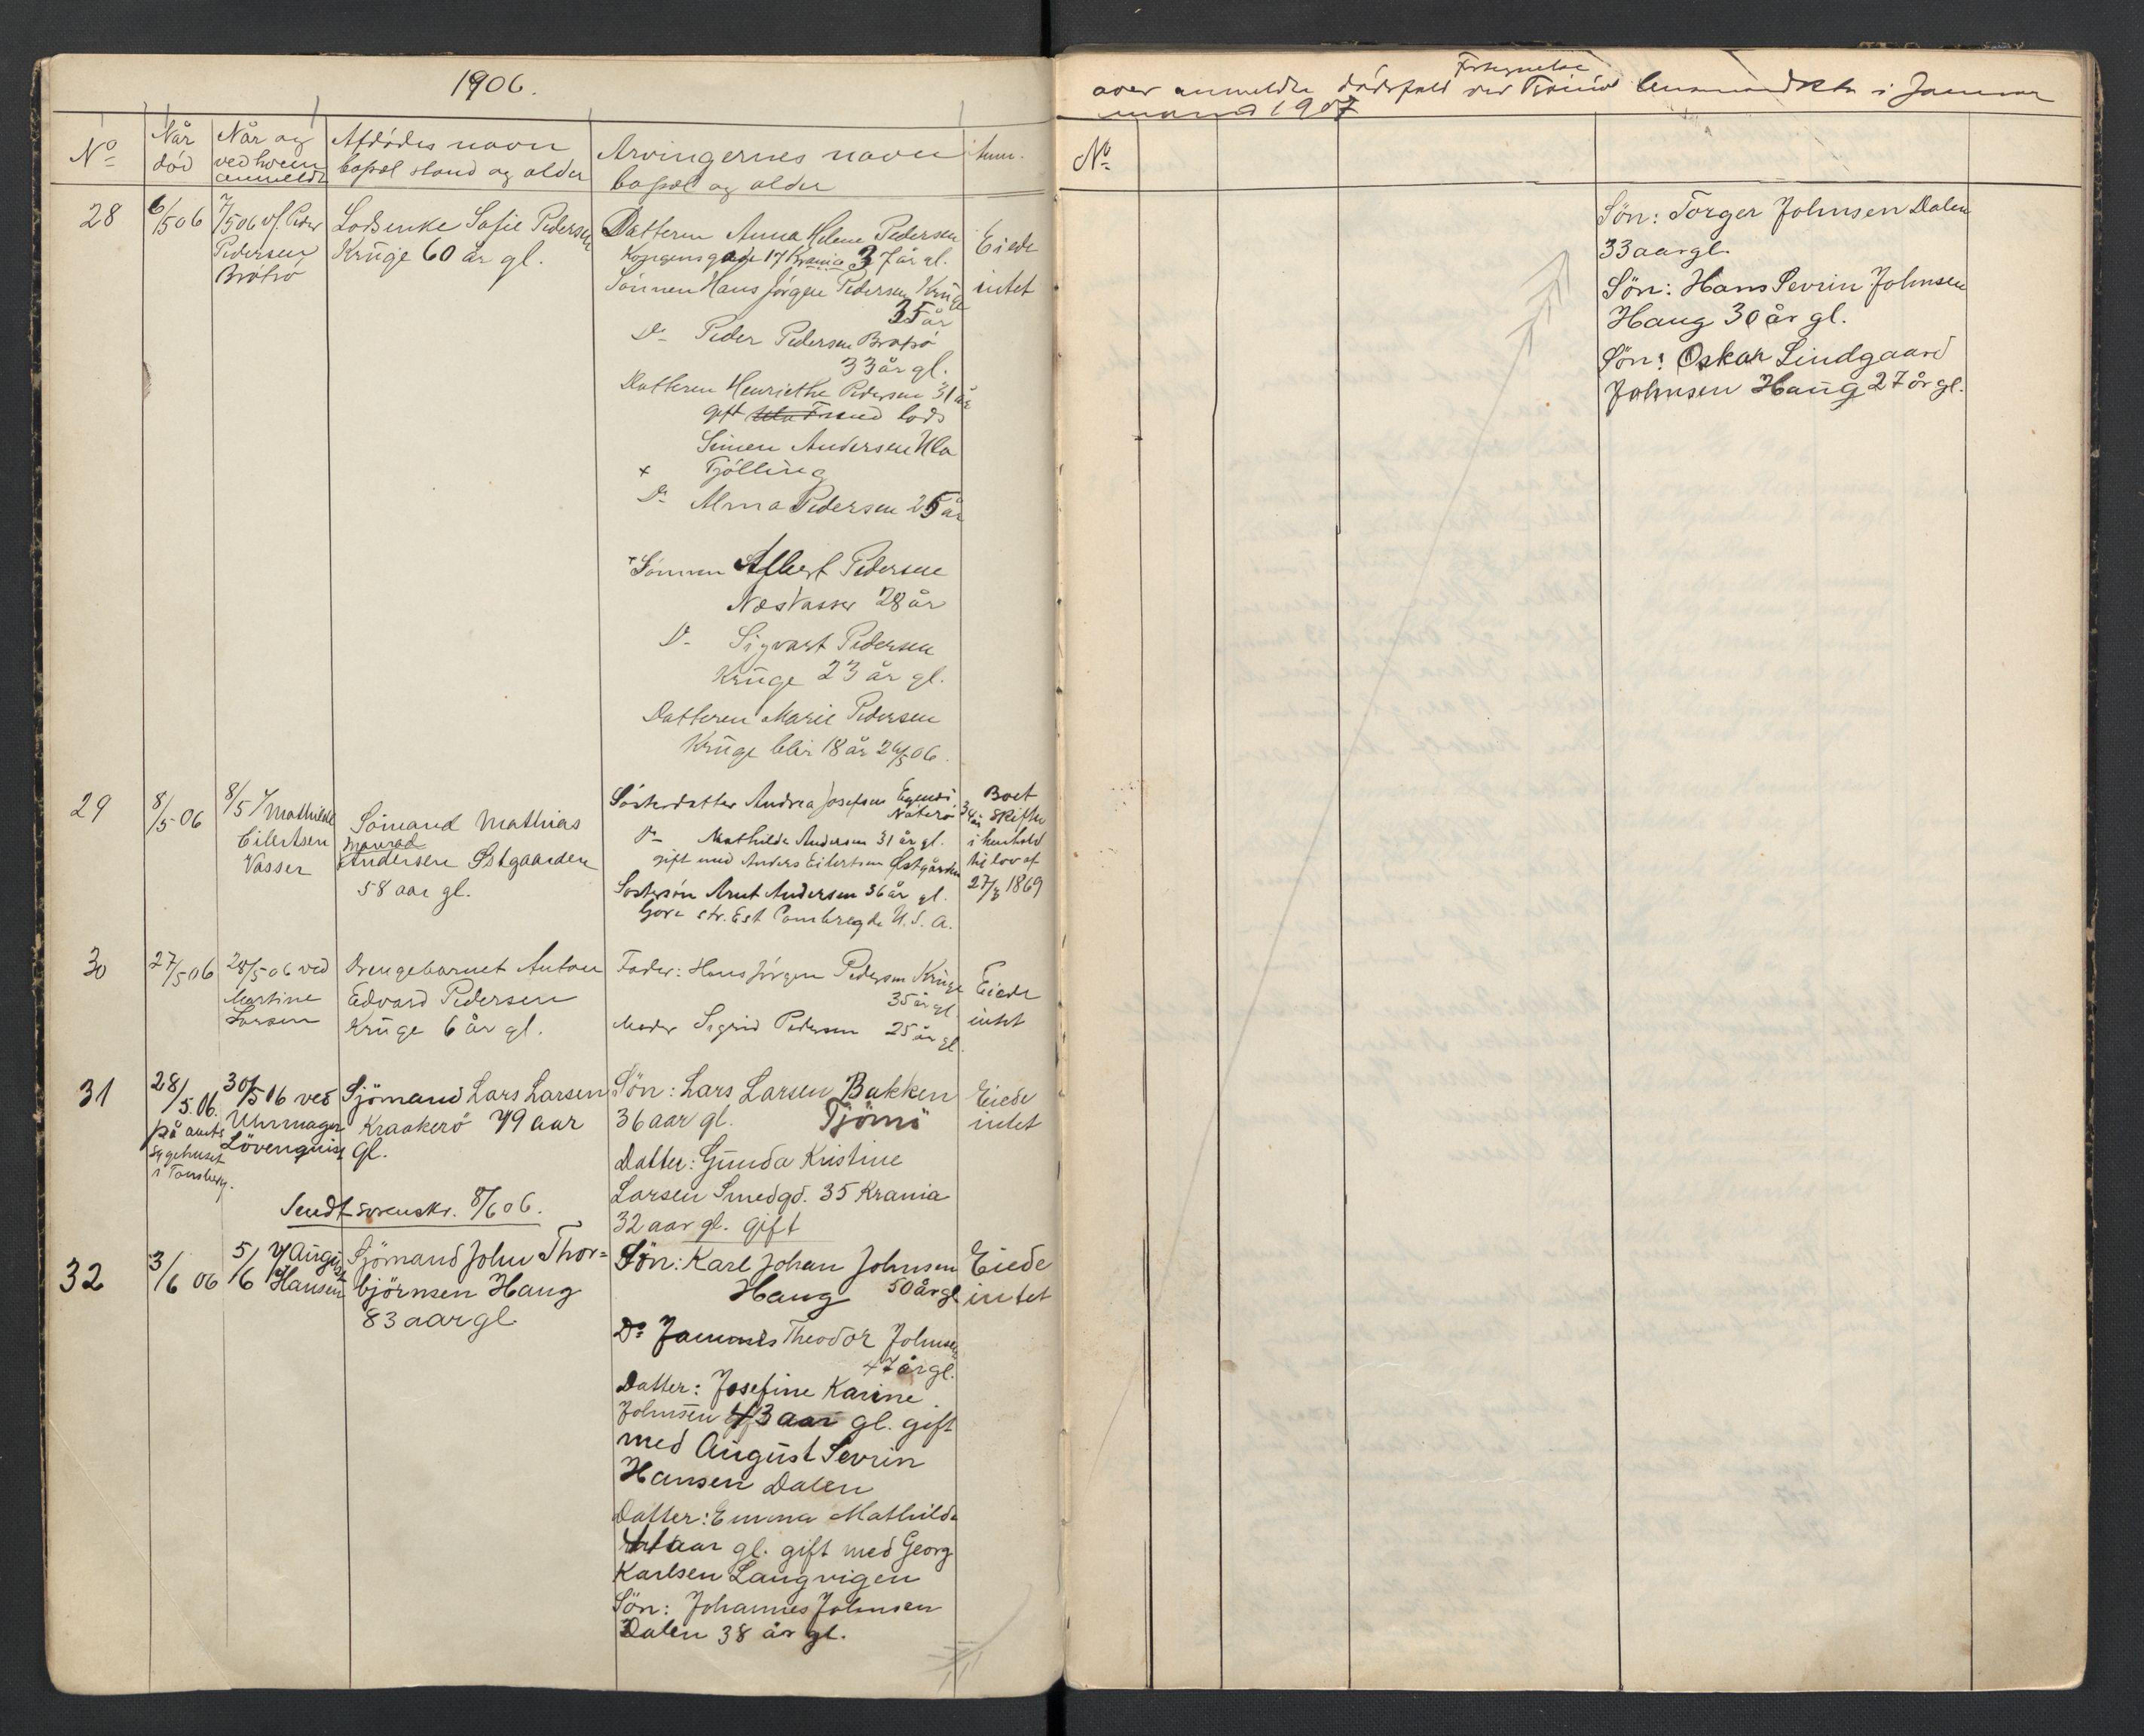 1906.
No
Når død
Når og ved hvem anmeldt
Afdødes navn bopæl stand og alder
Arvingernes navn bopæl og alder
Anm.
28
6/5 06
7/5 06 v/ Peder
Pedersen
Brøtsø
Lodsenke Sofie Pedersen
Krüge 60 år gl.
Datteren Anna Helene Pedersen
Kongensgade 17 Krania 37 år gl.
Sønnen Hans Jørgen Pedersen Krüge
35 år
Do Peder Pedersen Brøtsø
33 år gl.
Datteren Henriethe Pedersen 31 år
gift med lods
Simen Andersen Ula
x Tjølling
Do Alma Pedersen 25 år
Sønnen Albert Pedersen
Næs Vasser 28 år
Do Sigvart Pedersen
Krüge 23 år gl.
Datteren Marie Pedersen
Krüge blir 18 år 26/5 06.
Eiede
intet
29
8/5 06
8/5 v/ Mathilde
Eilertsen
Vasser
Sømand Mathias
Andersen Østgaarden
58 aar gl.
Søsterdatter Andrea Josefsen
Nøterø 34 år
Do Mathilde Andersen 31 år gl.
gift med Anders Eilertsen Østgården
Søstersøn Arnt Andersen 36 år gl.
Gore str. Est Cambregde U. S. A.
Boet
skifter
i henhold
til lov af
27/3 1869
30
27/5 06
28/5 06 ved
Martine
Larsen
Drengebarnet Anton
Edvard Pedersen
Krüge 6 år gl.
Fader: Hans Jørgen Pedersen Krüge
35 år gl.
Moder Sigrid Pedersen 25 år gl.
Eiede
intet
31
28/5. 06.
på amts
sygehuset
i Tønsberg.
30/5 06 ved
Uhrmager
Lövenquist
Sjömand Lars Larsen
Kraakerö 79 aar
gl.
Sön: Lars Larsen Bakken
36 aar gl. Tjömö
Datter: Gunda Kristine
Larsen Smedgd. 35 Krania
32 aar gl. gift
Eiede
intet
Sendt sorenskr. 8/6 06.
32
3/6 06
5/6 v/ August
Hansen
Sjömand John Thor=
björnsen Haug
83 aar gl.
Sön: Karl Johan Johnsen
Haug 50 år gl
Do Theodor Johnsen
47 år gl.
Datter: Josefine Karine
Johnsen 43 aar gl. gift
med August Sevrin
Hansen Dalen
Datter: Emma Mathilde
41 aar gl. gift med Georg
Karlsen Langvigen
Sön: Johannes Johnsen
Dalen 38 år gl.
Eiede
intet
Fortegnelse
over anmeldte dødsfald ved Tjømø lensmandsktr i Januar
maaned 1907
No
Sön: Torger Johnsen Dalen
33 aar gl.
Sön: Hans Sevrin Johnsen
Haug 30 år gl.
Sön: Oskar Lindgaard
Johnsen Haug 27 år gl.